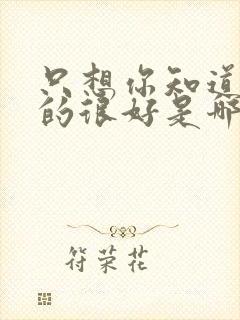 只想你知道
的很好是那
符荣花